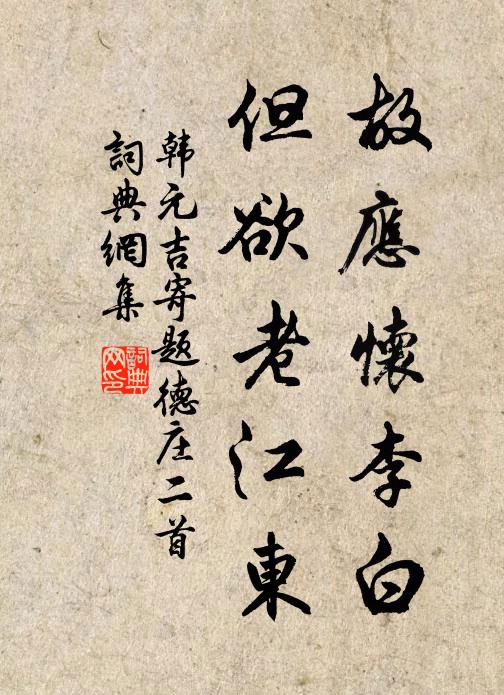 故應懷李白
但欲老江東
韩元吉寄题德庄二首
詞典網集
詞典
网印